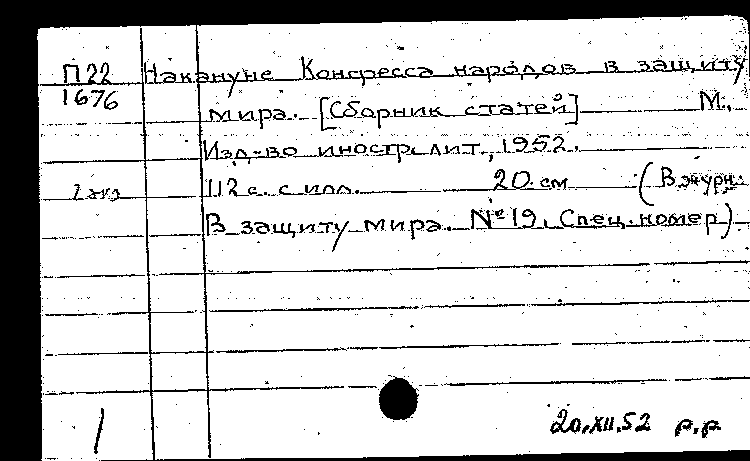 П22 Накануне Конгресса народов в защиту
1676 мира. [Сборник статей] М.,
Изд-во иностр. лит., 1952.
112 с. с илл. 20 см (В журн.
В защиту мира. № 19. Спец. номер).
20.XII.52 р.р